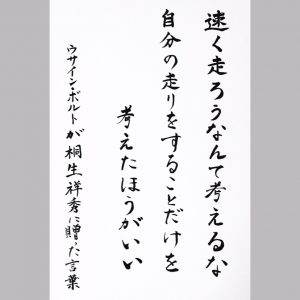 速く走ろうなんて考えるな
自分の走りをすることだけを
考えたほうがいい
ウサイン・ボルトが桐生祥秀に贈った言葉